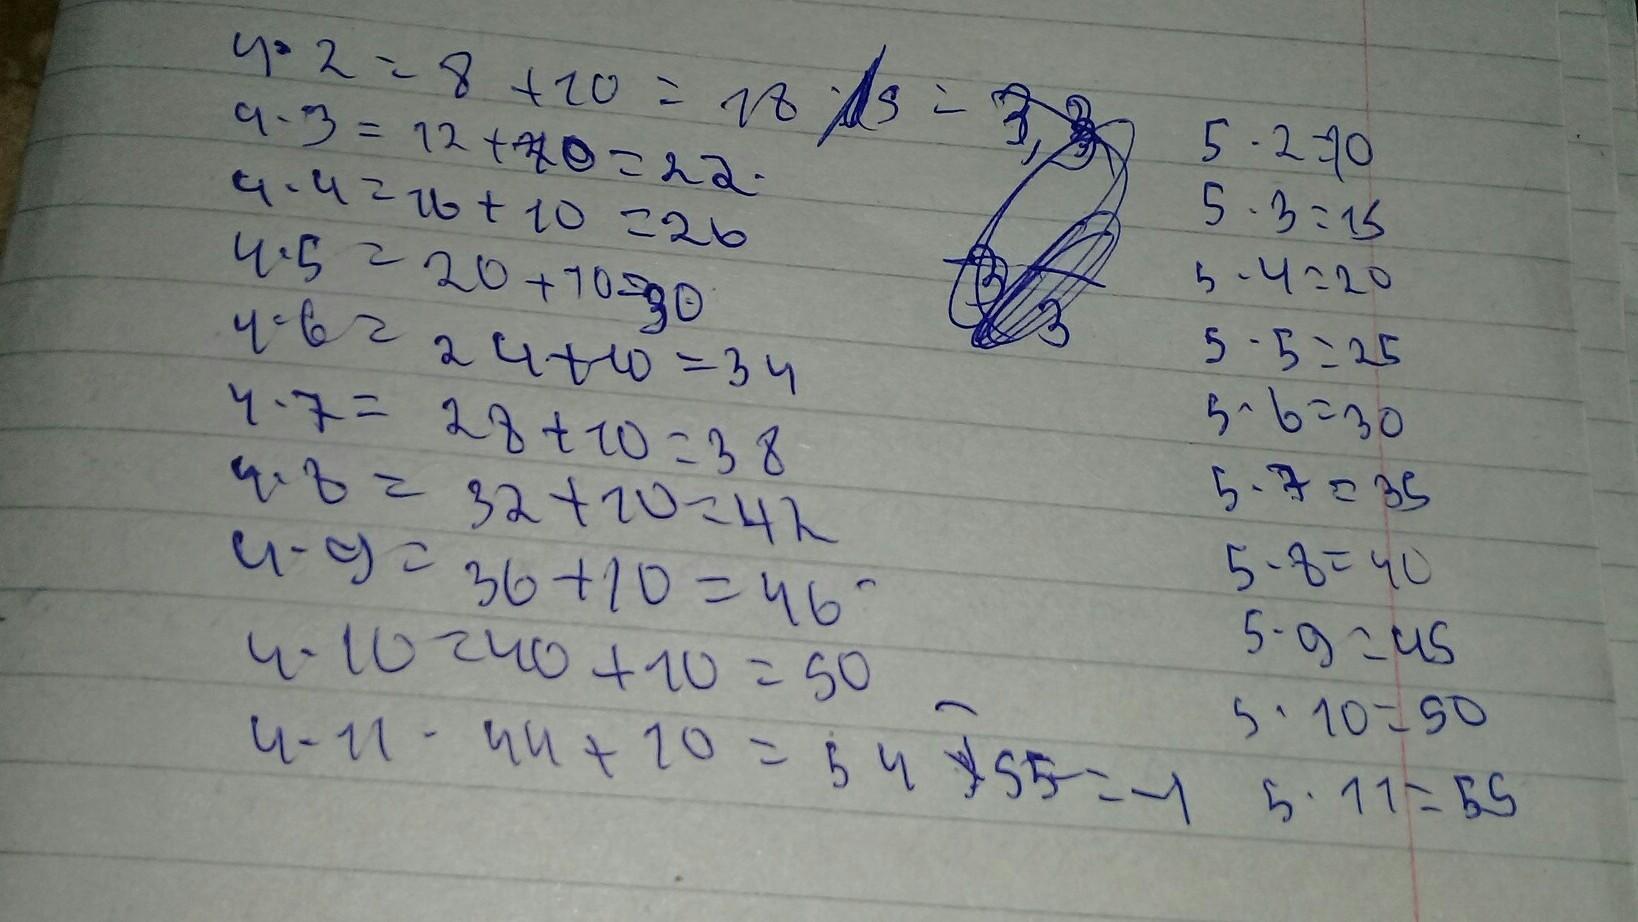 4·2 = 8 +10 = 18 : 15 = 3,3
4·3 = 12 +10 = 22.
4·4 = 16 + 10 = 26
4·5 = 20 +10=30
4·6 = 24 +10 = 34
4·7 = 28 +10 = 38
4·8 = 32 +10 = 42
4·9 = 36 +10 = 46-
4·10 = 40 +10 = 50
4·11 - 44 + 10 = 54 - 55 = -1
3 3
5·2=10
5·3=15
5·4=20
5·5=25
5·6=30
5·7=35
5·8=40
5·9=45
5·10=50
5·11=55